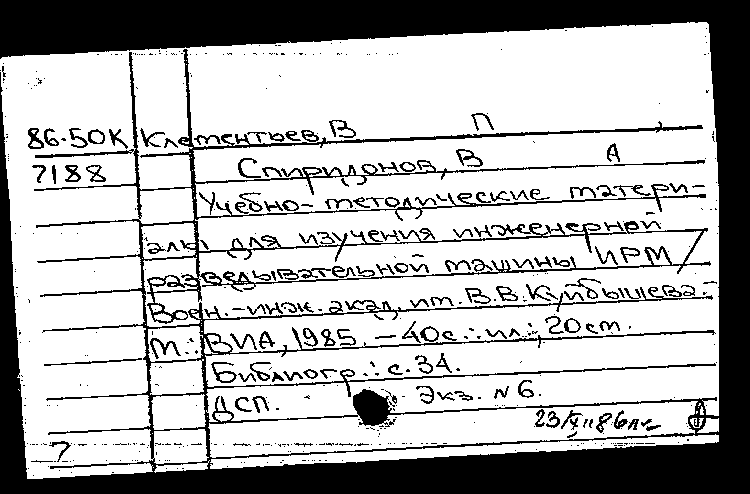 86-50К Клементьев, В П ,
7188 Спиридонов, В А
Учебно-методические матери-
алы для изучения инженерной
разведывательной машины ИРМ /
Воен.-инж. акад. им. В.В. Куйбышева.-
М.: ВИА, 1985. - 40с.: ил.; 20см.
Библиогр.: с. 34.
ДСП. Экз. № 6.
7